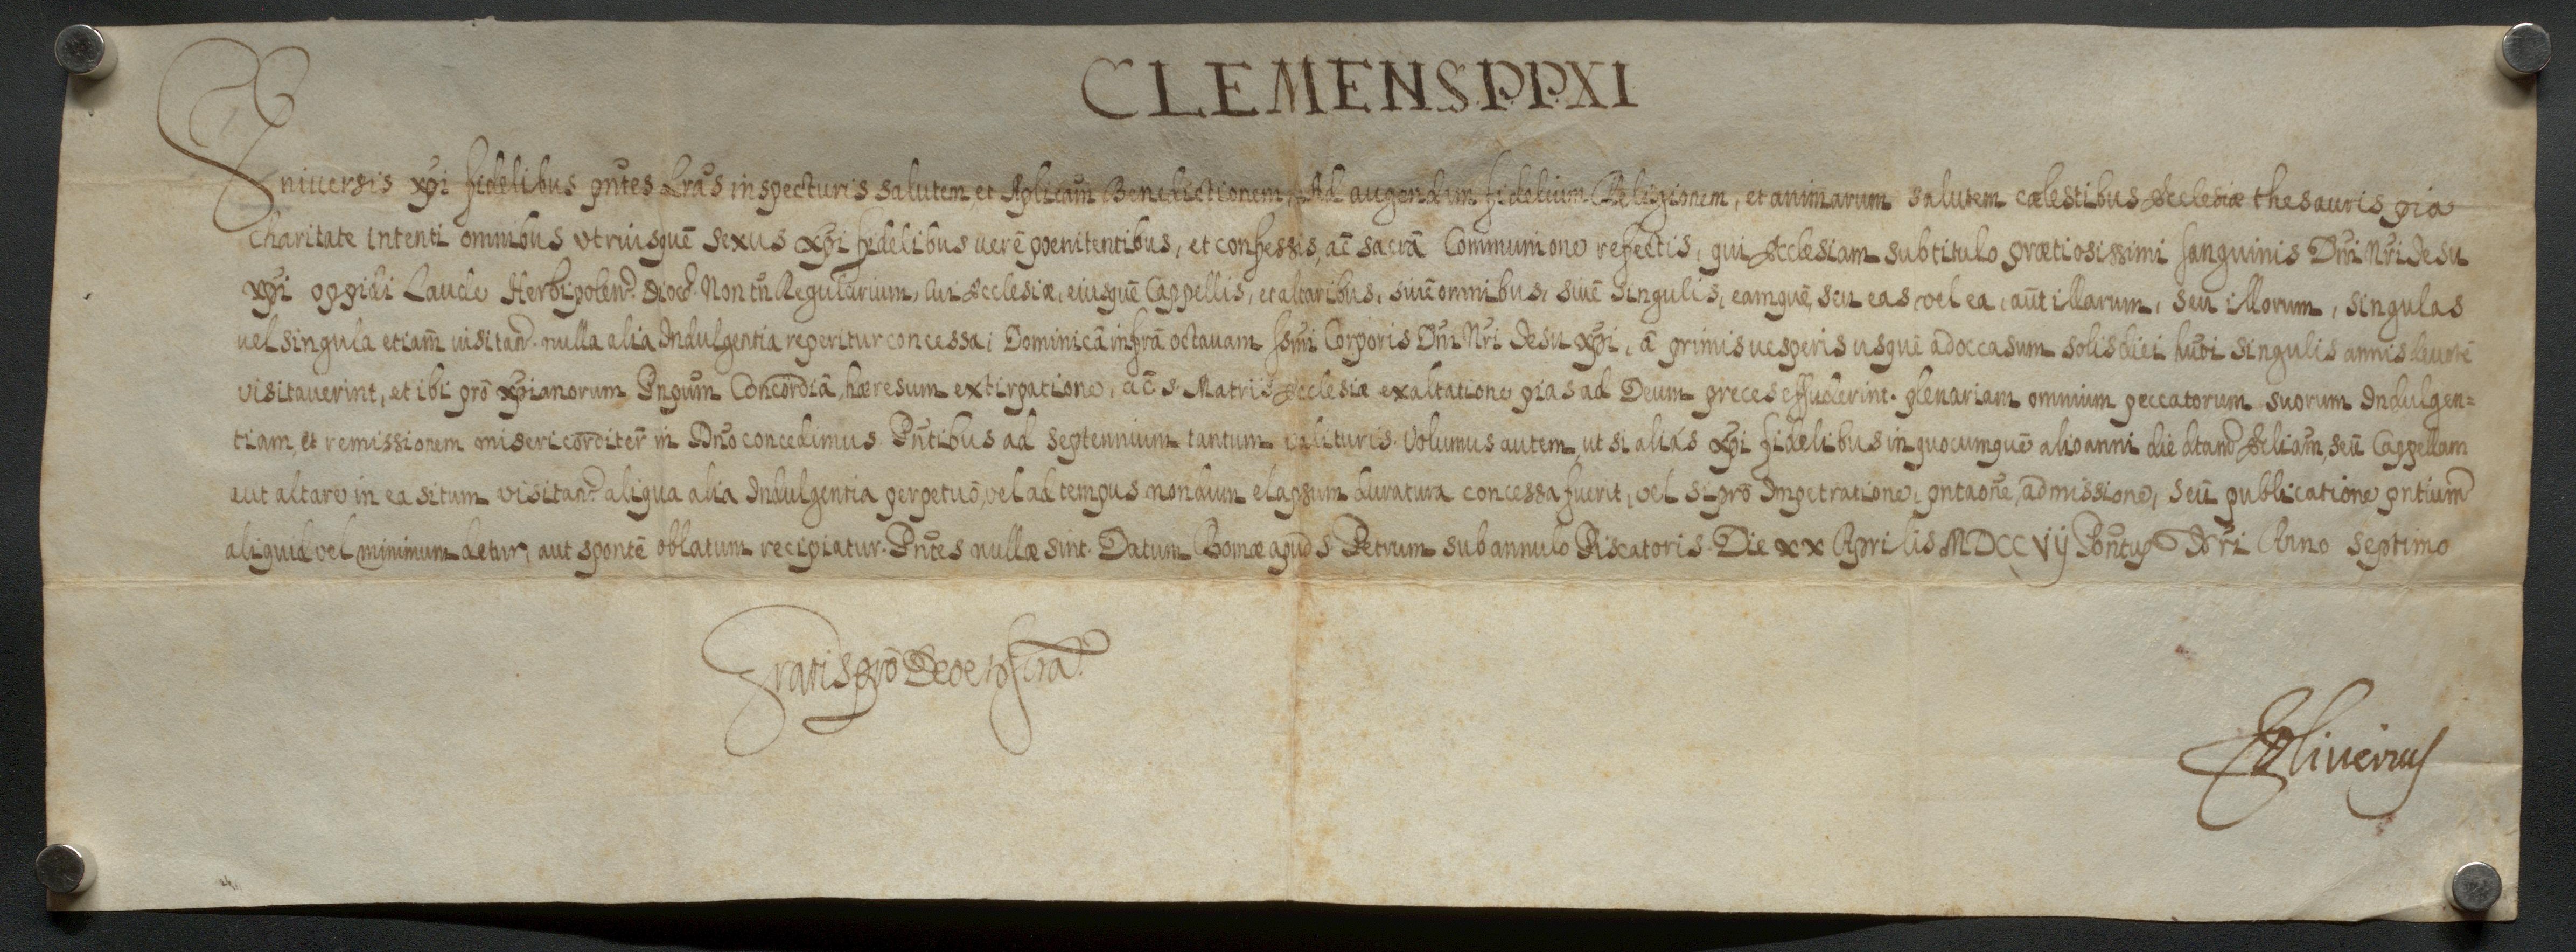 CLEMENS.P.P.XI
Vniuersis xp̃i fidelibus pñtes Lrãs inspecturis salutem et Ap̃licam̃ Benedictionem. Ad augendam fidelium Religionem, et animarum salutem cælestibus Ecclesiæ thesauris pia
charitate intenti omnibus vtriusquē sexus xp̃i fidelibus uerē poenitentibus, et confessis, ac̄ sacrā Communione refectis, qui Ecclesiam sub titulo prætiosissimi sanguinis Dñi Nr̃i Iesu
xp̃i oppidi Laude Herbipolen. Dioc. Non tñ Regularium, cui Ecclesiæ, eiusquē Cappellis, et altaribus, siuē omnibus, siuē singulis, eamquē, seu eas, vel ea, aut̄ illarum, seu illorum, singulas
uel singula etiam̃ uisitan. nulla alia Indulgentia reperitur concessa; Dominicā infrā octauam Ss̃mi Corporis Dñi Nr̃i Iesu xp̃i, ā primis uesperis usquē ad occasum solis diei huc̃i singulis annis deuotē
visitauerint, et ibi prō xp̃ianorum Pnpum̃ Concordiā, hæresum extirpatione, ac̄ s. Matris Ecclesiæ exaltatione pias ad Deum preces effuderint. plenariam omnium peccatorum suorum Indulgen=
tiam, et remissionem misericorditer̄ in Dñо concedimus. Pñtibus ad septennium tantum ualituris. Volumus autem, ut si aliās xp̃i fidelibus in quocumquē alio anni die dtam̃ Ecliam̃, seū Cappellam
aut altare in ea situm visitan. aliqua alia Indulgentia perpetuō, vel ad tempus nondum elapsum duratura concessa fuerit, vel si prō Impetratione, pntaoñe, admissione, seū publicatione pntium
aliquid vel minimum detur, aut spontē oblatum recipiatur. Pñtes nullæ sint. Datum Romæ apud S. Petrum sub annulo Piscatoris. Die xx Aprilis MDCCVIJ Pontus Nr̃i Anno septimo
Gratis prō Deo et scra
Oliuerius